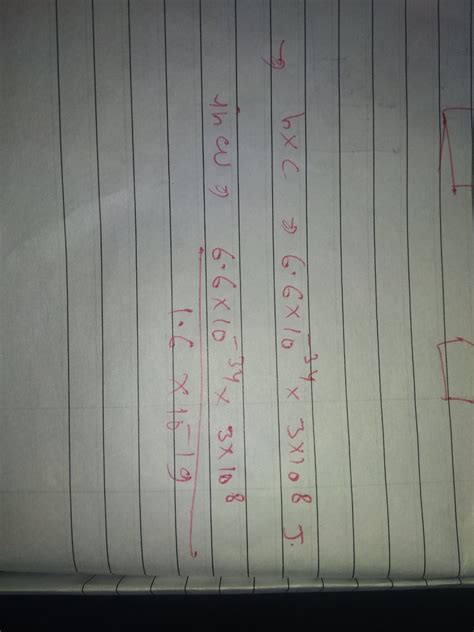 → h×c ⇒ 6.6×10⁻³⁴ × 3×10⁸ J.
in eV ⇒ 6.6×10⁻³⁴ × 3×10⁸
1.6 × 10⁻¹⁹